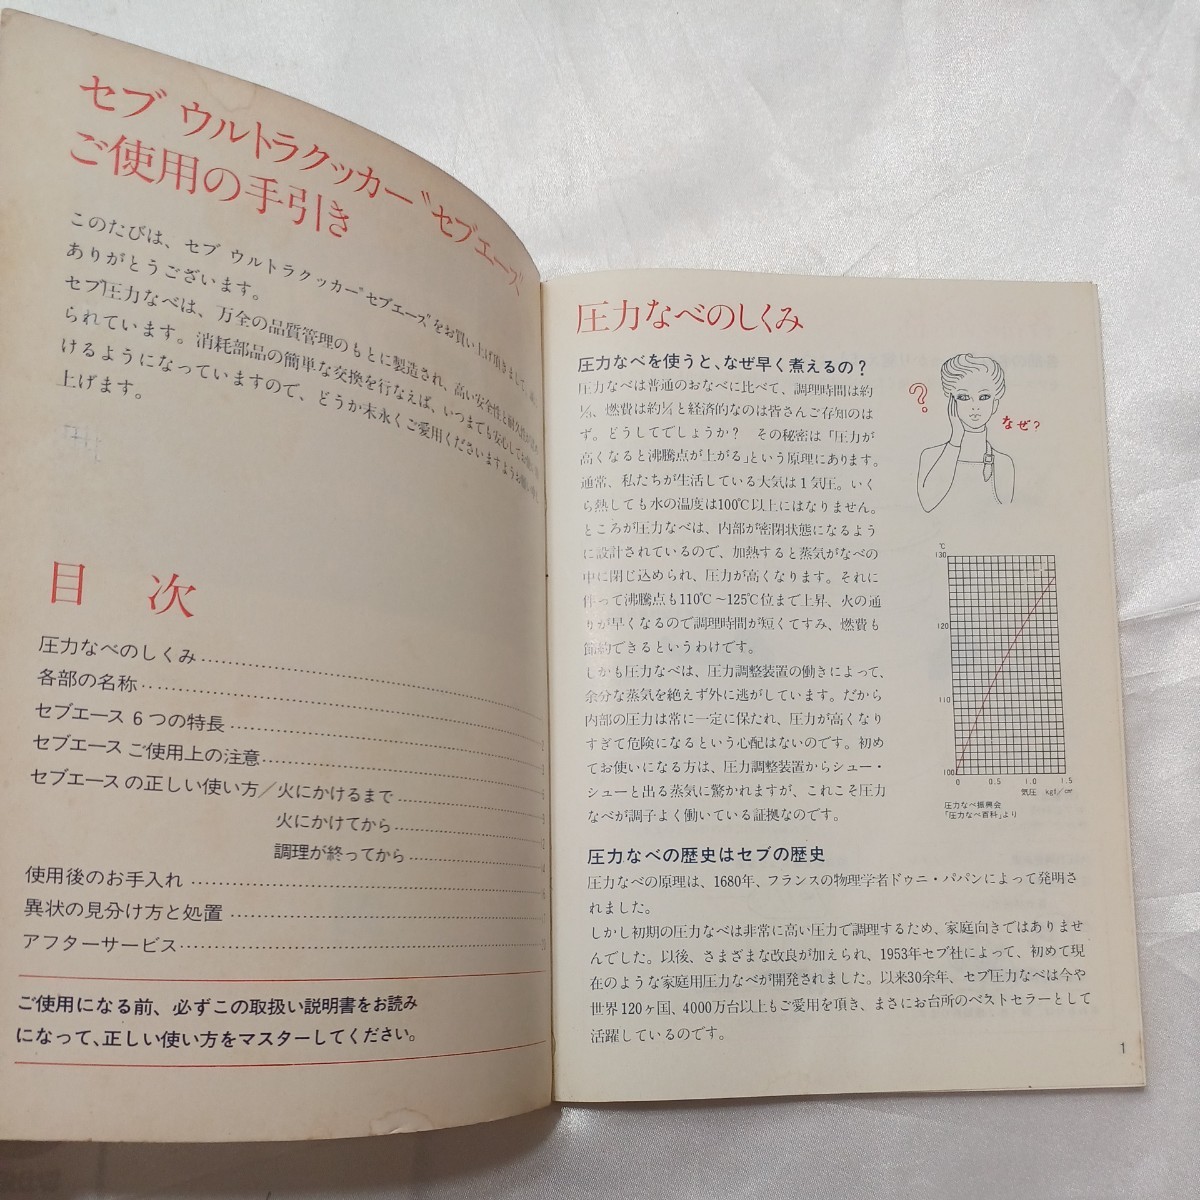 セブ ウルトラクッカー“セブエース”
ご使用の手引き
このたびは、セブ ウルトラクッカー“セブエース”をお買い上げ頂きまして、
ありがとうございます。
セブ圧力なべは、万全の品質管理のもとに製造され、高い安全性と
られています。消耗部品の簡単な交換を行なえば、いつまでも安心して
けるようになっていますので、どうか末永くご愛用くださいますよう
上げます。
目 次
圧力なべのしくみ
各部の名称
セブエース 6つの特長
セブエース ご使用上の注意
セブエースの正しい使い方／火にかけるまで
火にかけてから
調理が終ってから
使用後のお手入れ
異状の見分け方と処置
アフターサービス
ご使用になる前、必ずこの取扱い説明書をお読み
になって、正しい使い方をマスターしてください。
圧力なべのしくみ
圧力なべを使うと、なぜ早く煮えるの？
圧力なべは普通のおなべに比べて、調理時間は約
⅓、燃費は約¼と経済的なのは皆さんご存知のは
ず。どうしてでしょうか？ その秘密は「圧力が
高くなると沸騰点が上がる」という原理にあります。
通常、私たちが生活している大気は１気圧。いく
ら熱しても水の温度は100℃以上にはなりません。
ところが圧力なべは、内部が密閉状態になるよう
に設計されているので、加熱すると蒸気がなべの
中に閉じ込められ、圧力が高くなります。それに
伴って沸騰点も110℃～125℃位まで上昇、火の通
りが早くなるので調理時間が短くてすみ、燃費も
節約できるというわけです。
しかも圧力なべは、圧力調整装置の働きによって、
余分な蒸気を絶えず外に逃がしています。だから
内部の圧力は常に一定に保たれ、圧力が高くなり
すぎて危険になるという心配はないのです。初め
てお使いになる方は、圧力調整装置からシュー・
シューと出る蒸気に驚かれますが、これこそ圧力
なべが調子よく働いている証拠なのです。
？
なぜ？
℃
130
120
110
100
0 0.5 1.0 1.5
気圧 kgf/㎠
圧力なべ振興会
「圧力なべ百科」より
圧力なべの歴史はセブの歴史
圧力なべの原理は、1680年、フランスの物理学者ドゥニ・パパンによって発明さ
れました。
しかし初期の圧力なべは非常に高い圧力で調理するため、家庭向きではありませ
んでした。以後、さまざまな改良が加えられ、1953年セブ社によって、初めて現
在のような家庭用圧力なべが開発されました。以来30余年、セブ圧力なべは今や
世界120ヶ国、4000万台以上もご愛用を頂き、まさにお台所のベストセラーとして
活躍しているのです。
1